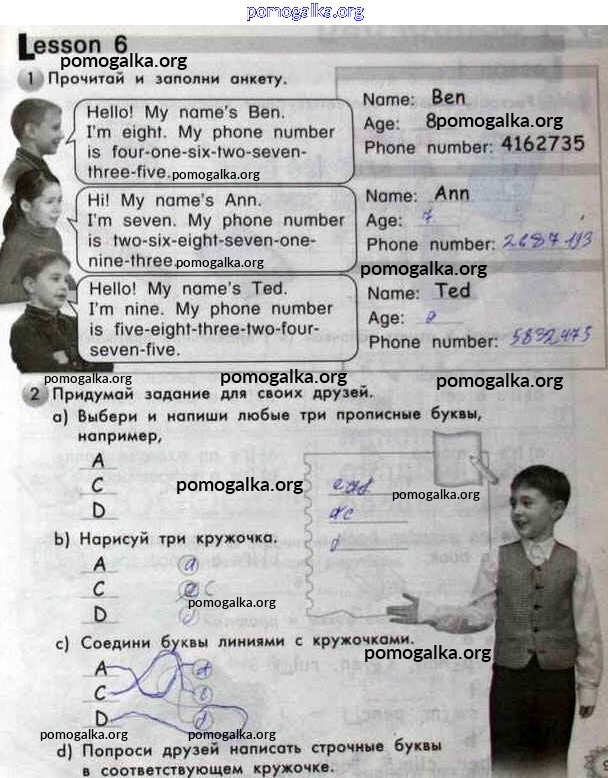 pomogalka.org
Lesson 6
pomogalka.org
1 Прочитай и заполни анкету.
Hello! My name's Ben.
I'm eight. My phone number
is four-one-six-two-seven-
three-five.
pomogalka.org
Name: Ben
Age: 8
pomogalka.org
Phone number: 4162735
Hi! My name's Ann.
I'm seven. My phone number
is two-six-eight-seven-one-
nine-three.
pomogalka.org
Name: Ann
Age: 7
Phone number: 2687193
pomogalka.org
Hello! My name's Ted.
I'm nine. My phone number
is five-eight-three-two-four-
seven-five.
Name: Ted
Age: 9
Phone number: 5832475
pomogalka.org
pomogalka.org
pomogalka.org
2 Придумай задание для своих друзей.
a) Выбери и напиши любые три прописные буквы,
например,
A
C
D
pomogalka.org
pomogalka.org
b) Нарисуй три кружочка.
A
C
D
pomogalka.org
c) Соедини буквы линиями с кружочками.
pomogalka.org
A
C
D
pomogalka.org
pomogalka.org
pomogalka.org
d) Попроси друзей написать строчные буквы
в соответствующем кружочке.